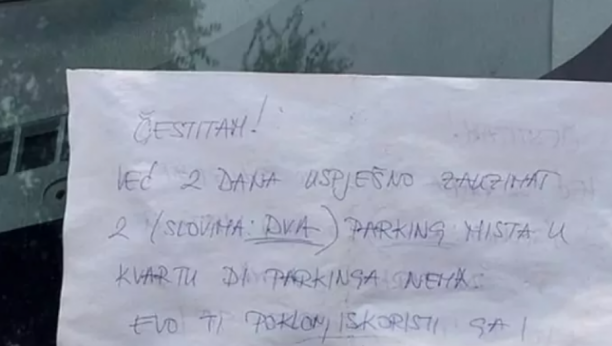 ČESTITAM!
VEĆ 2 DANA USPJEŠNO ZAUZIMAT
2 (SLOVIMA: DVA) PARKING MISTA U
KVARTU DI PARKINGA NEMA.
EVO TI POKLON, ISKORISTI GA!